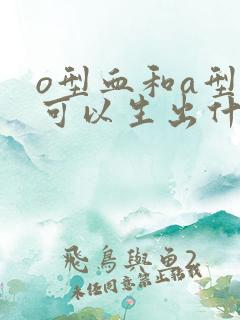 o型血和a型
可以生出什
飛鳥與魚2
未经同意禁止转载